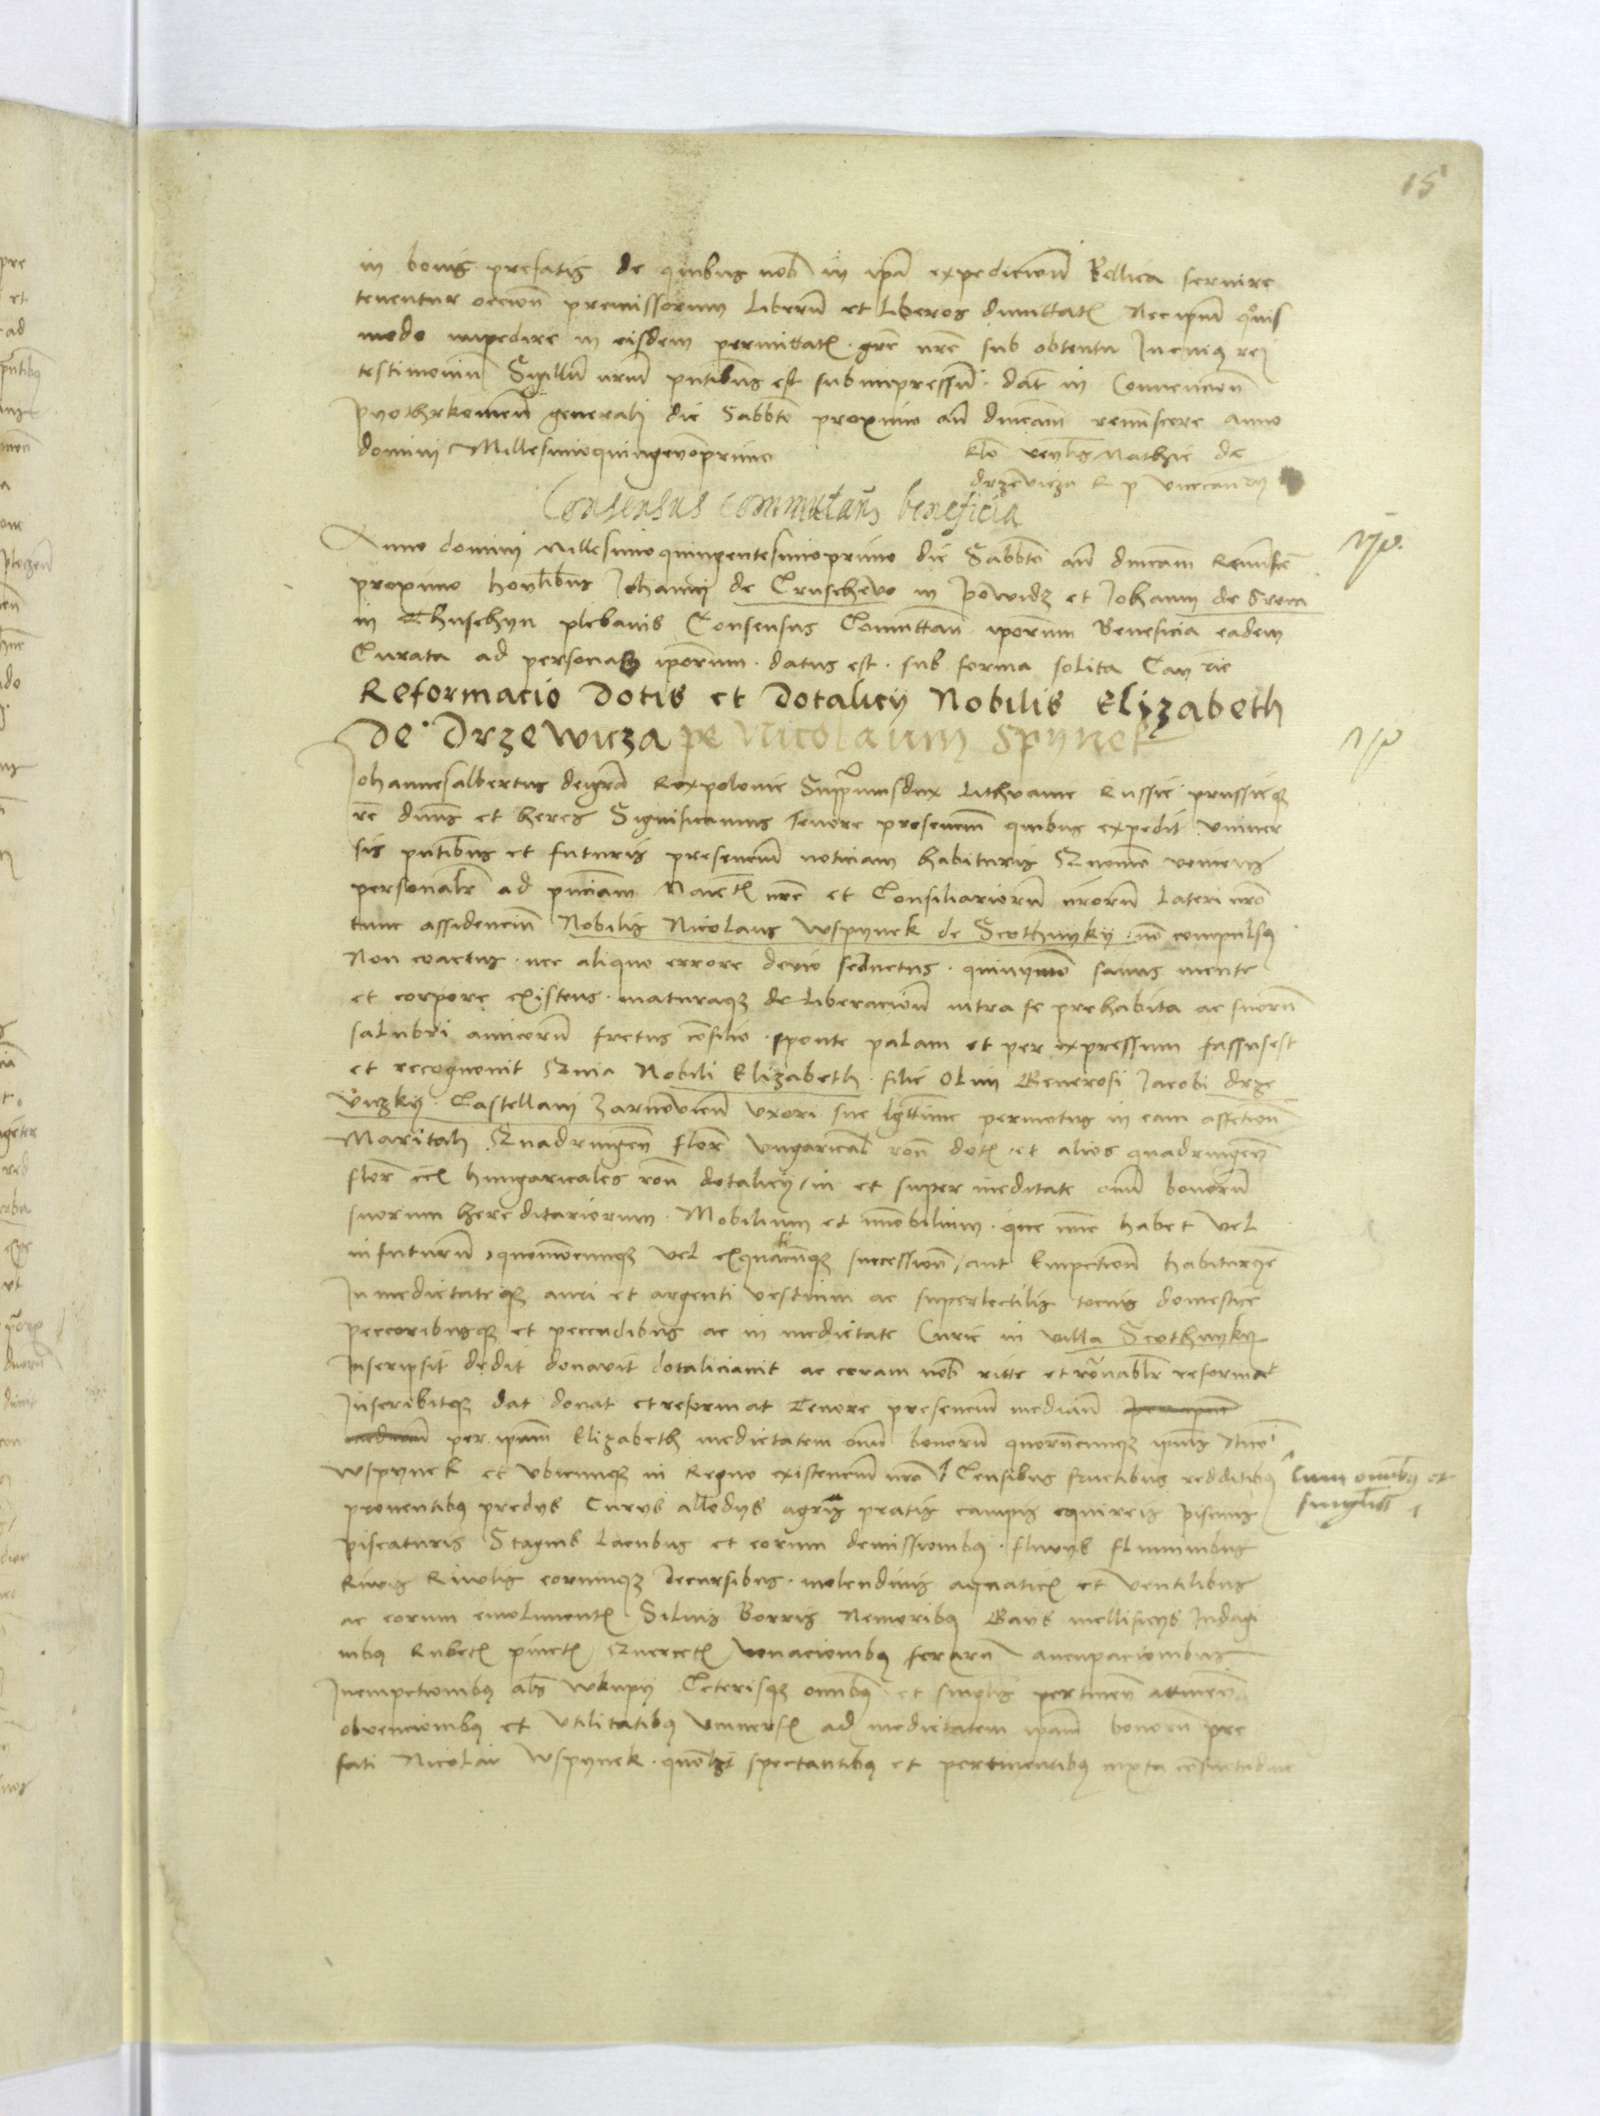 15
in bonis prefatis de quibus nob in ipa expedicione Bellica servire
tenentur occione premissorum Liberu et Liberos dimittat Nec ipm quovis
modo impedire in eisdem permittat gre nre sub obtentu In cuius rei
testimoniu Sigillu nrum pntibus est subimpressu dat in Convencione
Pyothrkowien generali die Sabbto proximo an dnicam reminiscere anno
domini Millesimoquingenoprimo
Rlo venlis Mathie de
drzevicza R p vicecan
Consensus commutan beneficia
Anno domini Millesimoquingentesimoprimo die Sabbto an dnicam Remisce
proximo honlibus Johanni de Cruschewo in Powidz et Johanni de Sroca
in Thuschyn plebanis Consensus Comuttan iporum Beneficia eadem
Curata ad personas iporum datus est sub forma solita Can rie
Reformacio Dotis et Dotalicy Nobilis Elizabeth
De Drzewicza pe Nicolaum Spynek
Johannesalbertus deigra Rexpolonie Suppremusdux Lithvanie Russie prussieq
re dnus et heres Significamus Tenore presencm quibus expedit univer
sis pntibus et futuris presenciu noticiam habituris Quomo veniens
personalr ad pnciam Maiet nre et Consiliarioru nroru Lateri nro
tunc assidenciu Nobilis Nicolaus Wspynek de Scothnyky no compulsq
Non coactus nec aliquo errore devio seductus quinymo sanus mente
et corpore existens maturaq deliberacione intra se prehabita ac suoru
salubri amicoru fretus cosilio sponte palam et per expressum fassusest
et recognovit Quia Nobili Elizabeth filie Olim Generosi Jacobi drze
viczky Castellani Zarnoviens Uxori sue lgttime permotus in eam affection
Maritali Quadringen flor Ungarical ron dot et alios quadringen
flor ccl hungaricales ron dotalicy in et super medietate omi bonoru
suorum hereditariorum Mobilium et imobilium que nuc habet vel
infuturu quomocunq vel exquacuq successione aut Empcione habiturqe
In medietateq auri et argenti vestium ac superlectilis tocius domestice
peccoribusq et pecudibus ac in medietate Curie in villa Scothnyky
Inscripsit dedit donavit dotaliciavit ac coram nob ritte et ronablr reformat
Inscribitq dat donat et reformat Tenore presenciu mediam
per ipam Elizabeth medietatem omi bonoru quorucunq ipius Nico
Wspynek et ubicunq in Regno existenciu nro Censibus fructibus redditibq
Cum omnibq et
singulis
proventibq predys Curys allodys agris pratis campis equireis piscinis
piscaturis Stagnis Lacubus et eorum demissionibq fluvys fluminibus
Rivis Rivolis eorumq Decursibus molendinis aquatic et ventilibus
ac eorum emolument Silvis Borris Nemoribq Gays mellificys Indagi
nibq Rubet pinet Quercet venacionibq feraru aucupacionibus
Inempcionibq abs Wkupy Ceterisq omibq et singlis pertinen attinen
obvencionibq et Utilitatibq Univers ad medietatem ipam bonoru pre
fati Nicolai Wspynek quolzt spectantibq et pertinentibq iuxta cosuetudine